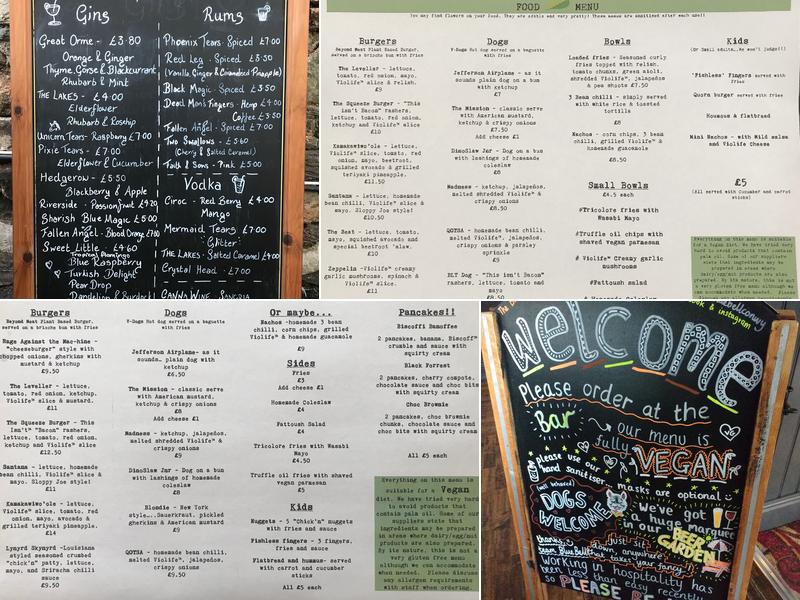 Gins
Great Orme - £3.80
Orange & Ginger
Thyme, Gorse & Blackcurrant
Rhubarb & Mint
THE LAKES - £4.00
Elderflower
Rhubarb & Rosehip
Unicorn Tears - Raspberry £7.00
Pixie Tears - £7.00
Elderflower & Cucumber
Hedgerow - £5.50
Blackberry & Apple
Riverside - Passionfruit £4.20
Sharish Blue Magic £5.00
Fallen Angel - Blood Orange £7.00
Sweet Little - £4.60
Tropical Flamingo
Blue Raspberry
Turkish Delight
Pear Drop
Dandelion & Burdock
Rums
Phoenix Tears - Spiced £7.00
Red Leg - Spiced £3.50
(Vanilla, Ginger & Caramelised Pineapple)
Black Magic - Spiced £3.50
Dead Man's Fingers - Hemp £4.00
Coffee £3.50
Fallen Angel - Spiced £7.00
Two Swallows - £3.60
(Cherry & Salted Caramel)
Tall & Sons - Pink £5.00
Vodka
Ciroc - Red Berry £4.00
Mango
Mermaid Tears £7.00
Glitter
THE LAKES - Salted Caramel £4.00
Crystal Head - £7.00
CANNA WINE SANGRIA
FOOD MENU
You may find flowers on your food. They are edible and very pretty! These menus are sanitised after each use!!
Burgers
Beyond Meat Plant Based Burger, served on a brioche bun with fries
The Leveller - lettuce,
tomato, red onion, mayo,
Violife* slice & relish.
£9
The Squeeze Burger - "This
isn't Bacon" rashers,
lettuce, tomato, red onion,
ketchup and Violife* slice
£10
Kamakawiwo'ole - lettuce,
Violife* slice, tomato, red
onion, mayo, beetroot,
squished avocado & grilled
teriyaki pineapple.
£11.50
Santana - lettuce, homemade
bean chilli, Violife* slice,
mayo. Sloppy Joe style!
£10.50
The Beat - lettuce, tomato,
mayo, squished avocado and
special beetroot 'slaw.
£10
Zeppelin -Violife* creamy
garlic mushrooms, spinach &
Violife* slice.
£11
Dogs
V-Dogs Hot dog served on a baguette with fries
Jefferson Airplane - as it
sounds plain dog on a bun
with ketchup
£7
The Mission - classic serve
with American mustard,
ketchup & crispy onions
£7.50
Add cheese £1
DinoSlaw Jr - Dog on a bun
with lashings of homemade
coleslaw
£8
Madness - ketchup, jalapeños,
melted shredded Violife* &
crispy onions
£8.50
QOTSA - homemade bean chilli,
melted Violife*, jalapeños,
crispy onions & parsley
sprinkle
£9
BLT Dog - "This isn't Bacon"
rashers, lettuce, tomato and
mayo
£8.50
Bowls
Loaded fries - Seasoned curly
fries topped with relish,
tomato chunks, green aioli,
shredded Violife*, jalapeños
& pea shoots £7.50
3 Bean chilli - simply served
with white rice & toasted
tortilla
£8
Nachos - corn chips, 3 bean
chilli, grilled Violife* &
homemade guacamole
£8.50
Small Bowls
£4.5 each
#Tricolore fries with
Wasabi Mayo
#Truffle oil chips with
shaved vegan parmesan
# Violife* Creamy garlic
mushrooms
#Fattoush salad
# Homemade Coleslaw
Kids
(Or Small adults… we won't judge!!)
'Fishless' Fingers served with fries
Quorn burger served with fries
Houmous & flatbread
Mini Nachos - with Mild salsa
and Violife Cheese
£5
(All served with Cucumber and carrot sticks)
Everything on this menu is suitable
for a vegan diet. We have tried very
hard to avoid products that contain
palm oil. Some of our suppliers
state that ingredients may be
prepared in areas where
dairy/egg/nut/also products are also
prepared. By its nature, this is not
a very gluten free menu although we
can accommodate when needed. Please
Burgers
Beyond Meat Plant Based Burger, served on a brioche bun with fries
Rage Against the Mac-hine -
"cheeseburger" style with
chopped onions, gherkins with
mustard & ketchup
£9.50
The Leveller - lettuce,
tomato, red onion, ketchup,
Violife* slice & mustard.
£11
The Squeeze Burger - This
Isn't* "Bacon" rashers,
lettuce, tomato, red onion,
ketchup and Violife* slice
£12.50
Santana - lettuce, homemade
bean chilli, Violife* slice,
mayo. Sloppy Joe style!
£11
Kamakawiwo'ole - lettuce,
Violife* slice, tomato, red
onion, mayo, avocado &
grilled teriyaki pineapple
£14
Lynyrd Skynyrd -Louisiana
style seasoned crumbed
"chick'n" patty, lettuce,
mayo, and Sriracha chilli
sauce
£9.50
Dogs
V-Dogs Hot dog served on a baguette with fries
Jefferson Airplane- as it
sounds… plain dog with
ketchup
£6.50
The Mission - classic serve
with American mustard,
ketchup & crispy onions
£8
Add cheese £1
Madness - ketchup, jalapeños,
melted shredded Violife* &
crispy onions
£9
DinoSlaw Jr - Dog on a bun
with lashings of homemade
coleslaw
£8
Blondie - New York
style….Sauerkraut, pickled
gherkins & American mustard
£9
QOTSA - homemade bean chilli,
melted Violife*, jalapeños,
crispy onions
£9.50
Or maybe...
Nachos -homemade 3 bean
chilli, corn chips, grilled
Violife* & homemade guacamole
£9
Sides
Fries
£3
Add cheese £1
Homemade Coleslaw
£4
Fattoush Salad
£4
Tricolore fries with Wasabi
Mayo
£4.50
Truffle oil fries with shaved
vegan parmesan
£5
Kids
Nuggets - 5 "Chick'n" nuggets
with fries and sauce
Fishless fingers - 3 fingers,
fries and sauce
Flatbread and hummus- served
with carrot and cucumber
sticks
All £5 each
Pancakes!!
Biscoffi Banoffee
2 pancakes, banana, Biscoff*
crumble and sauce with
squirty cream
Black Forrest
2 pancakes, cherry compote,
chocolate sauce and choc bits
with squirty cream
Choc Brownie
2 pancakes, choc brownie
chunks, chocolate sauce and
choc bits with squirty cream
All £5 each
Everything on this menu is
suitable for a Vegan
diet. We have tried very hard
to avoid products that
contain palm oil. Some of our
suppliers state that
ingredients may be prepared
in areas where dairy/egg/nut
products are also prepared.
By its nature, this is not a
very gluten free menu
although we can accommodate
when needed. Please discuss
any allergen requirements
with staff when ordering.
& instagram
Welcome
Please order at the
Bar
our menu is
fully VEGAN
please use our
hand sanitiser
masks are optional :)
(well behaved)
DOGS
WELCOME
we've got
a huge marquee
in our
BEER
GARDEN
just sit
down, anywhere
takes your fancy!
Working in hospitality has
been less than easy recently
so PLEASE BE